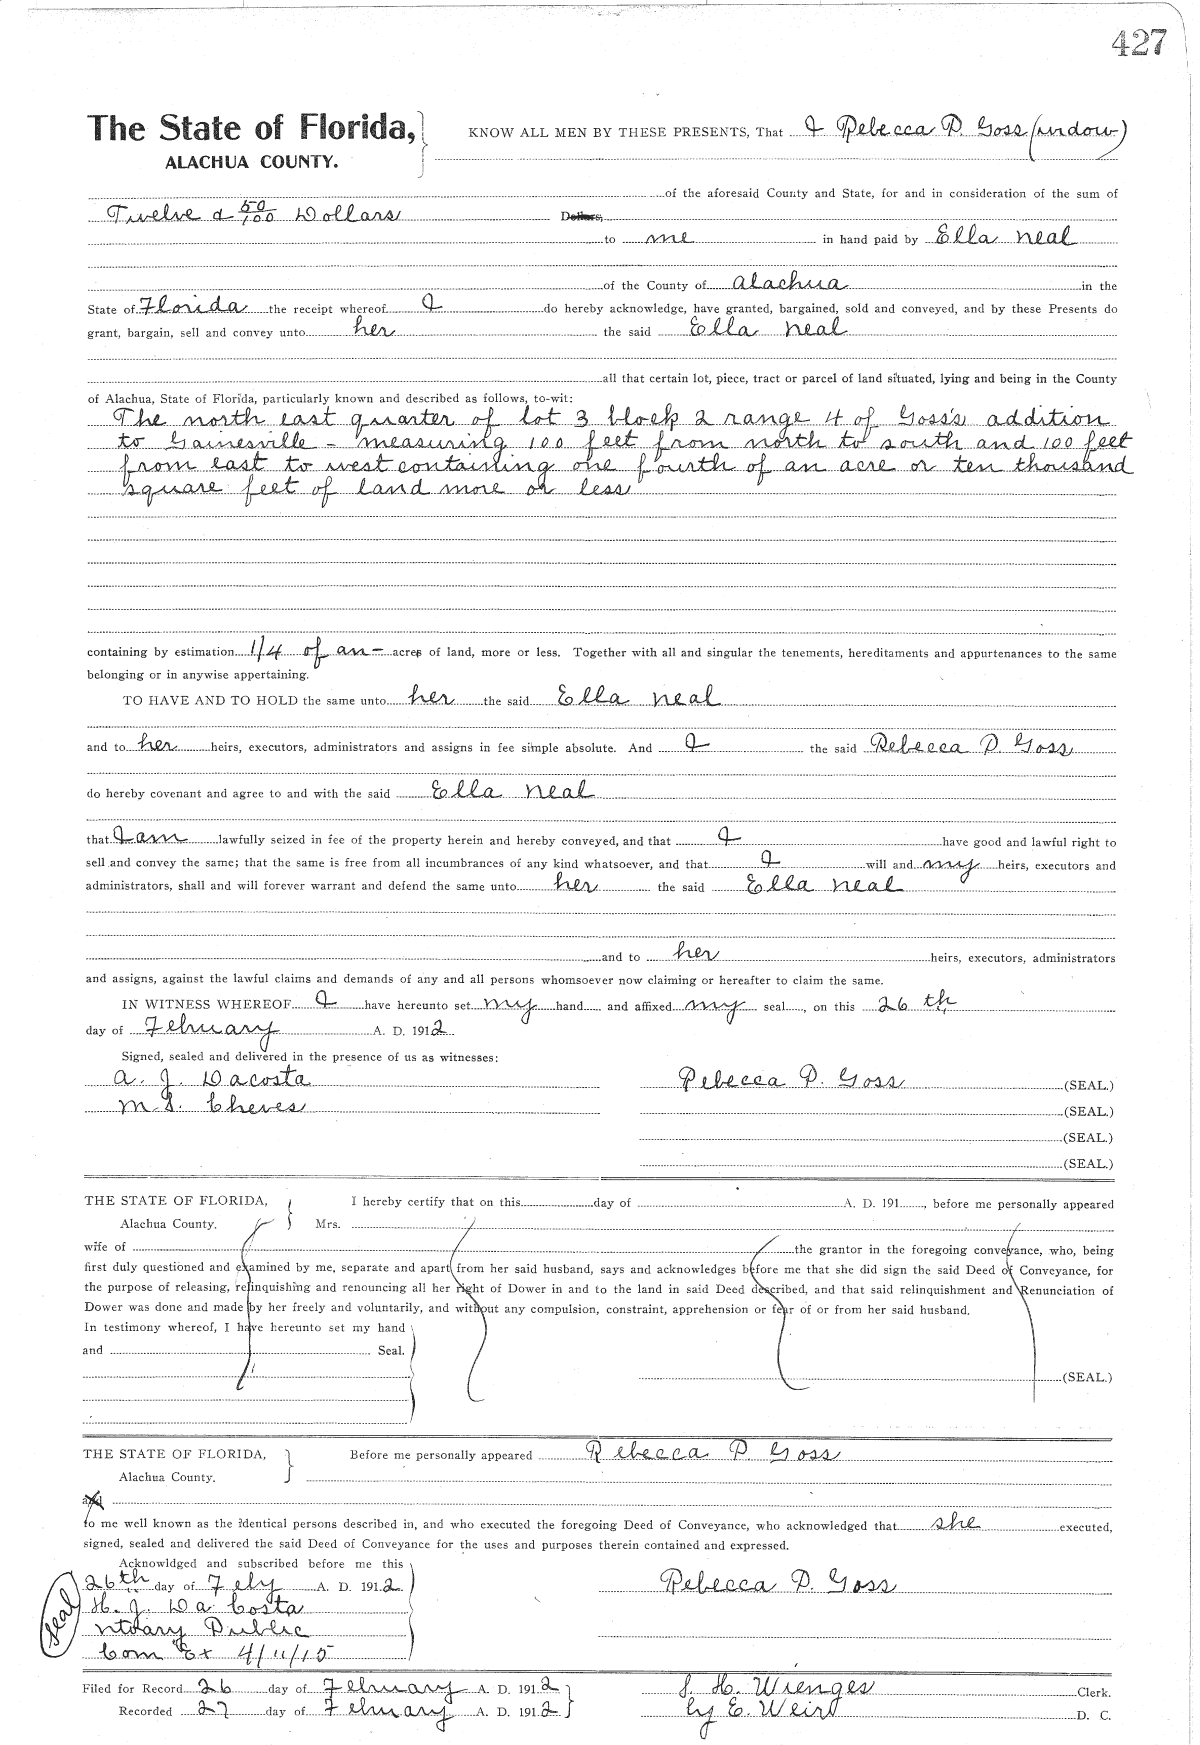 427
The State of Florida, KNOW ALL MEN BY THESE PRESENTS, That I Rebecca P. Goss (widow)
ALACHUA COUNTY.
of the aforesaid County and State, for and in consideration of the sum of
Twelve & 50/100 Dollars Dollars,
to me in hand paid by Ella Neal
of the County of Alachua in the
State of Florida the receipt whereof I do hereby acknowledge, have granted, bargained, sold and conveyed, and by these Presents do
grant, bargain, sell and convey unto her the said Ella Neal
all that certain lot, piece, tract or parcel of land situated, lying and being in the County
of Alachua, State of Florida, particularly known and described as follows, to-wit:
The north east quarter of lot 3 block 2 range 4 of Goss's addition
to Gainesville - measuring 100 feet from north to south and 100 feet
from east to west containing one fourth of an acre or ten thousand
square feet of land more or less
containing by estimation 1/4 of an - acres of land, more or less. Together with all and singular the tenements, hereditaments and appurtenances to the same
belonging or in anywise appertaining.
TO HAVE AND TO HOLD the same unto her the said Ella Neal
and to her heirs, executors, administrators and assigns in fee simple absolute. And I the said Rebecca P. Goss
do hereby covenant and agree to and with the said Ella Neal
that I am lawfully seized in fee of the property herein and hereby conveyed, and that I have good and lawful right to
sell and convey the same; that the same is free from all incumbrances of any kind whatsoever, and that I will and my heirs, executors and
administrators, shall and will forever warrant and defend the same unto her the said Ella Neal
and to her heirs, executors, administrators
and assigns, against the lawful claims and demands of any and all persons whomsoever now claiming or hereafter to claim the same.
IN WITNESS WHEREOF I have hereunto set my hand and affixed my seal, on this 26th
day of February A. D. 1912
Signed, sealed and delivered in the presence of us as witnesses:
A. J. Dacosta Rebecca P. Goss (SEAL.)
M. S. Cheves (SEAL.)
(SEAL.)
(SEAL.)
THE STATE OF FLORIDA, I hereby certify that on this day of A. D. 191, before me personally appeared
Alachua County. Mrs.
wife of the grantor in the foregoing conveyance, who, being
first duly questioned and examined by me, separate and apart from her said husband, says and acknowledges before me that she did sign the said Deed of Conveyance, for
the purpose of releasing, relinquishing and renouncing all her right of Dower in and to the land in said Deed described, and that said relinquishment and Renunciation of
Dower was done and made by her freely and voluntarily, and without any compulsion, constraint, apprehension or fear of or from her said husband.
In testimony whereof, I have hereunto set my hand
and Seal.
(SEAL.)
THE STATE OF FLORIDA, Before me personally appeared Rebecca P. Goss
Alachua County.
and
to me well known as the identical persons described in, and who executed the foregoing Deed of Conveyance, who acknowledged that she executed,
signed, sealed and delivered the said Deed of Conveyance for the uses and purposes therein contained and expressed.
Acknowldged and subscribed before me this
26th day of Feby A. D. 1912. Rebecca P. Goss
Seal H. J. Da Costa
Notary Public
Com Ex 4/11/15
Filed for Record 26 day of February A. D. 1912 S. H. Wienges Clerk.
Recorded 27 day of February A. D. 1912 by E. Weir D. C.